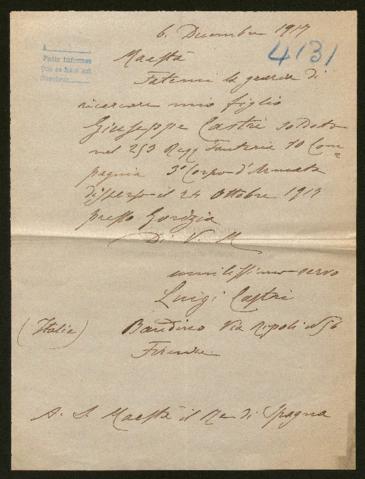 6. Decembre 1917
4131
Maestà
Fatemi la grazia di
ricercare mio figlio
Giuseppe Castri soldato
nel 253 Regg Fanteria 10 Com=
pagnia 3° Corpo d'Armata
disperso il 24 Ottobre 1917
presso Gorizia
Di V. M
umilissimo servo
Luigi Castri
(Italia) Bandino Via Ripoli N 56
Firenze
A. S. Maestà il Re di Spagna